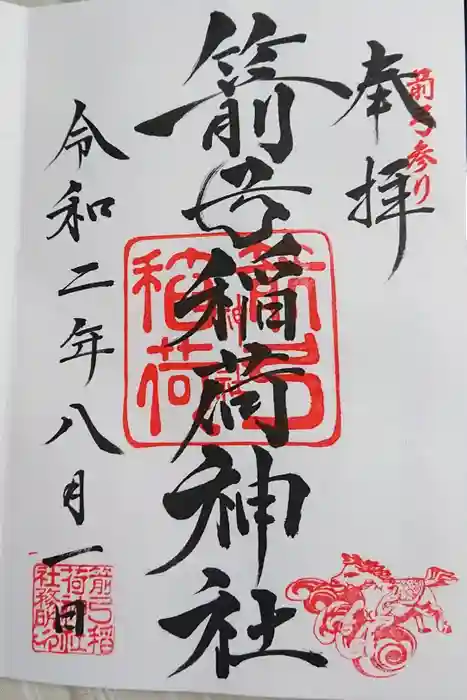 奉拝
箭弓参り
箭弓稲荷神社
箭弓稲荷神社
令和二年八月一日
箭弓稲荷社社務所印